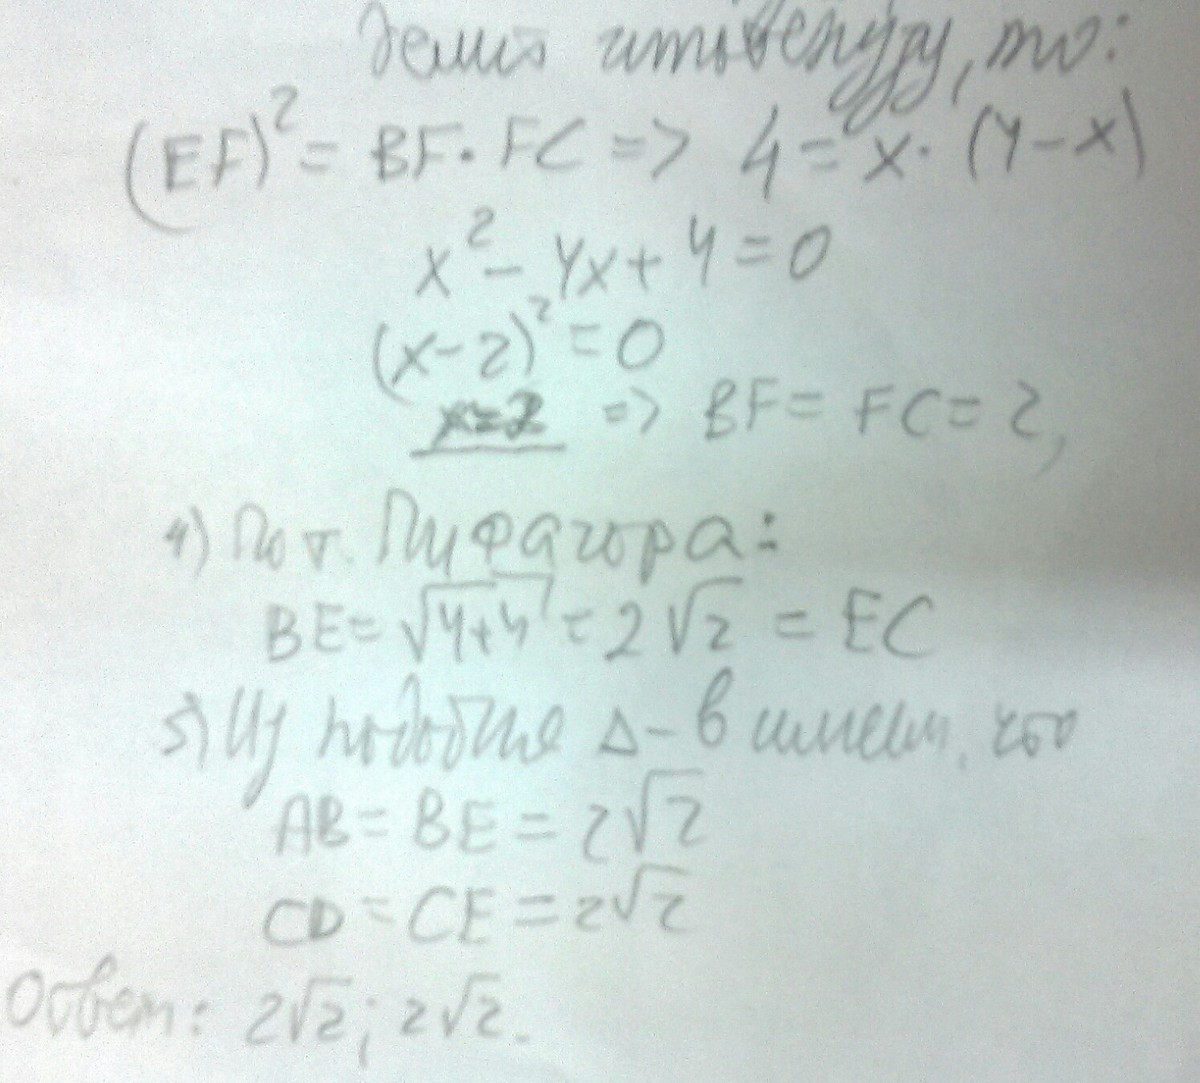 делит гипотенузу, то:
(EF)² = BF · FC => 4 = x · (4 - x)
x² - 4x + 4 = 0
(x - 2)² = 0
x = 2 => BF = FC = 2,
4) По т. Пифагора:
BE = √4+4 = 2√2 = EC
5) Из подобие Δ-в имеем, что
AB = BE = 2√2
CD = CE = 2√2
Ответ: 2√2; 2√2.